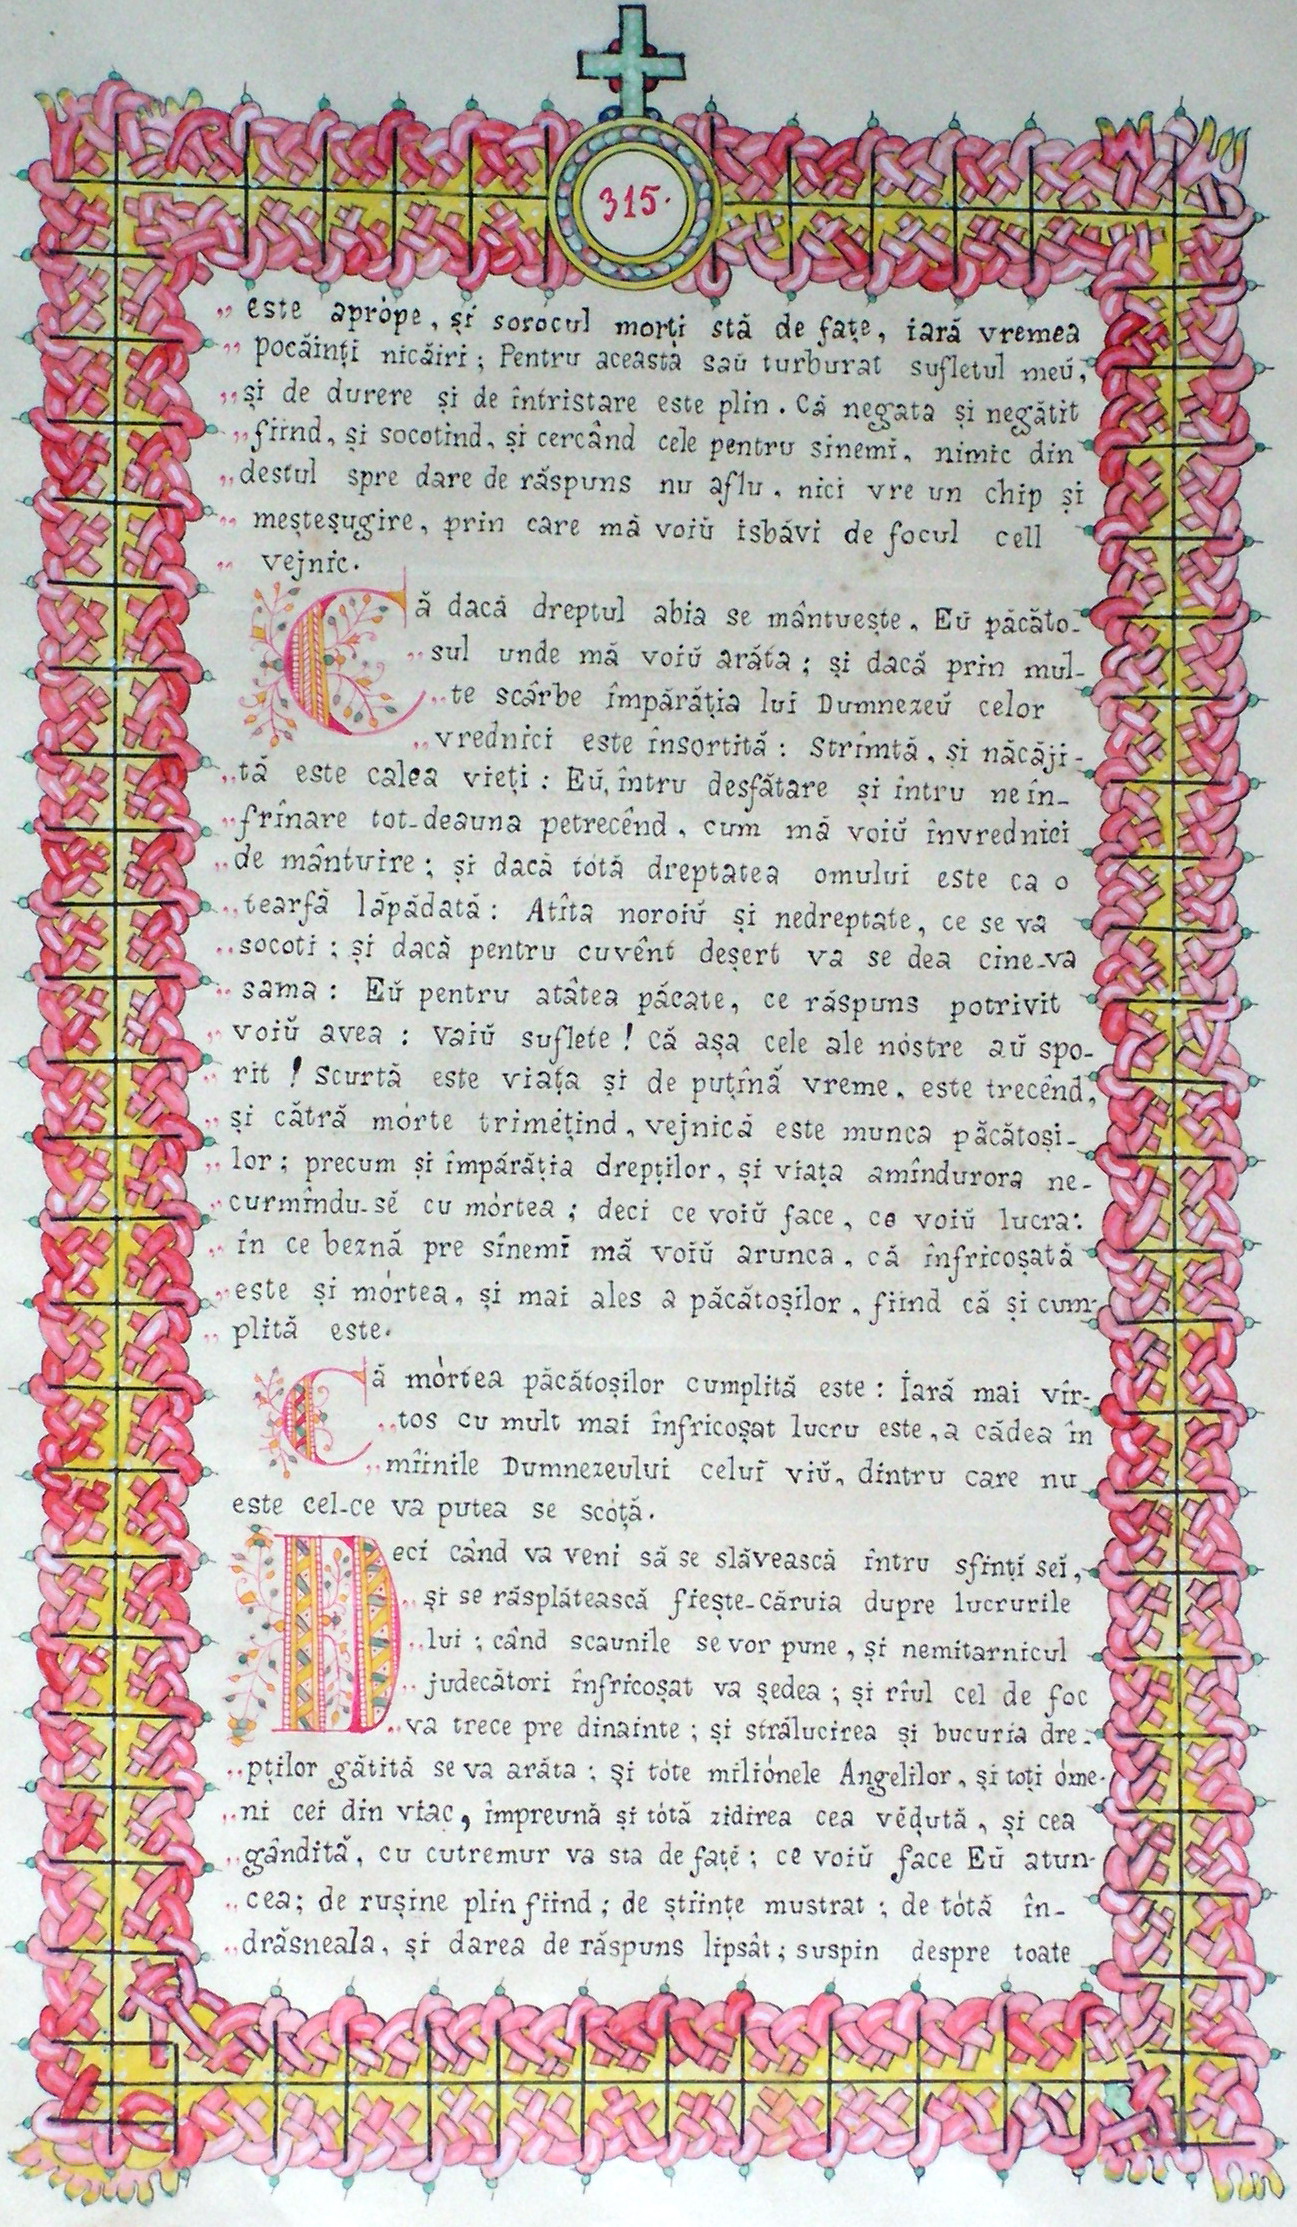 315.
„ este aprópe, și sorocul morți stă de fațe, iară vremea
„ pocăinți nicăiri; Pentru aceasta saŭ turburat sufletul meŭ,
„ și de durere și de întristare este plin. Că negata și negătit
„ fiind, și socotind, și cercând cele pentru sinemĭ, nimic din
„ destul spre dare de răspuns nu aflu, nici vre un chip și
„ meșteșugire, prin care mă voiŭ isbăvi de focul cell
„ vejnic.
Că dacă dreptul abia se mântuește, Eŭ păcăto-
„ sul unde mă voiŭ arăta; și dacă prin mul-
„ te scârbe împărăția lui Dumnezeŭ celor
„ vrednici este însortită: Strîmtă, și năcăji-
„ tă este calea vieți: Eŭ, întru desfătare și întru neîn-
„ frînare tot-deauna petrecênd, cum mă voiŭ învrednici
„ de mântuire; și dacă tótă dreptatea omului este ca o
„ tearfă lăpădată: Atîta noroiŭ și nedreptate, ce se va
„ socoti; și dacă pentru cuvênt deșert va se dea cine-va
„ sama: Eŭ pentru atâtea păcate, ce răspuns potrivit
„ voiŭ avea: Vaiŭ suflete! Că așa cele ale nóstre aŭ spo-
„ rit! Scurtă este viața și de puțînă vreme, este trecênd,
„ și cătră mórte trimețind, vejnică este munca păcătoși-
„ lor; precum și împărăția drepților, și viața amîndurora ne-
„ curmîndu-sĕ cu mórtea; deci ce voiŭ face, ce voiŭ lucra:
„ în ce beznă pre sînemĭ mă voiŭ arunca, că înfricoșată
„ este și mórtea, și mai ales a păcătoșilor, fiind că și cum-
„ plită este.
Că mórtea păcătoșilor cumplită este: Iară mai vîr-
„ tos cu mult mai înfricoșat lucru este, a cădea în
„ mîinile Dumnezeului celuĭ viŭ, dintru care nu
este cel-ce va putea se scóță.
Deci când va veni să se slăvească întru sfinți seĭ,
„ și se răsplătească fiește-căruia dupre lucrurile
„ lui; când scaunile se vor pune, și nemitarnicul
„ judecători înfricoșat va ședea; și rîul cel de foc
„ va trece pre dinainte; și strălucirea și bucuria dre-
„ pților gătită se va arăta; și tóte miliónele Angelilor, și toți óme-
„ ni cei din viac, împreună și tótă zidirea cea vĕḑută, și cea
„ gândită, cu cutremur va sta de fațĕ; ce voiŭ face Eŭ atun-
„ cea; de rușine plin fiind; de științe mustrat; de tótă în-
„ drăsneala, și darea de răspuns lipsât; suspin despre toate